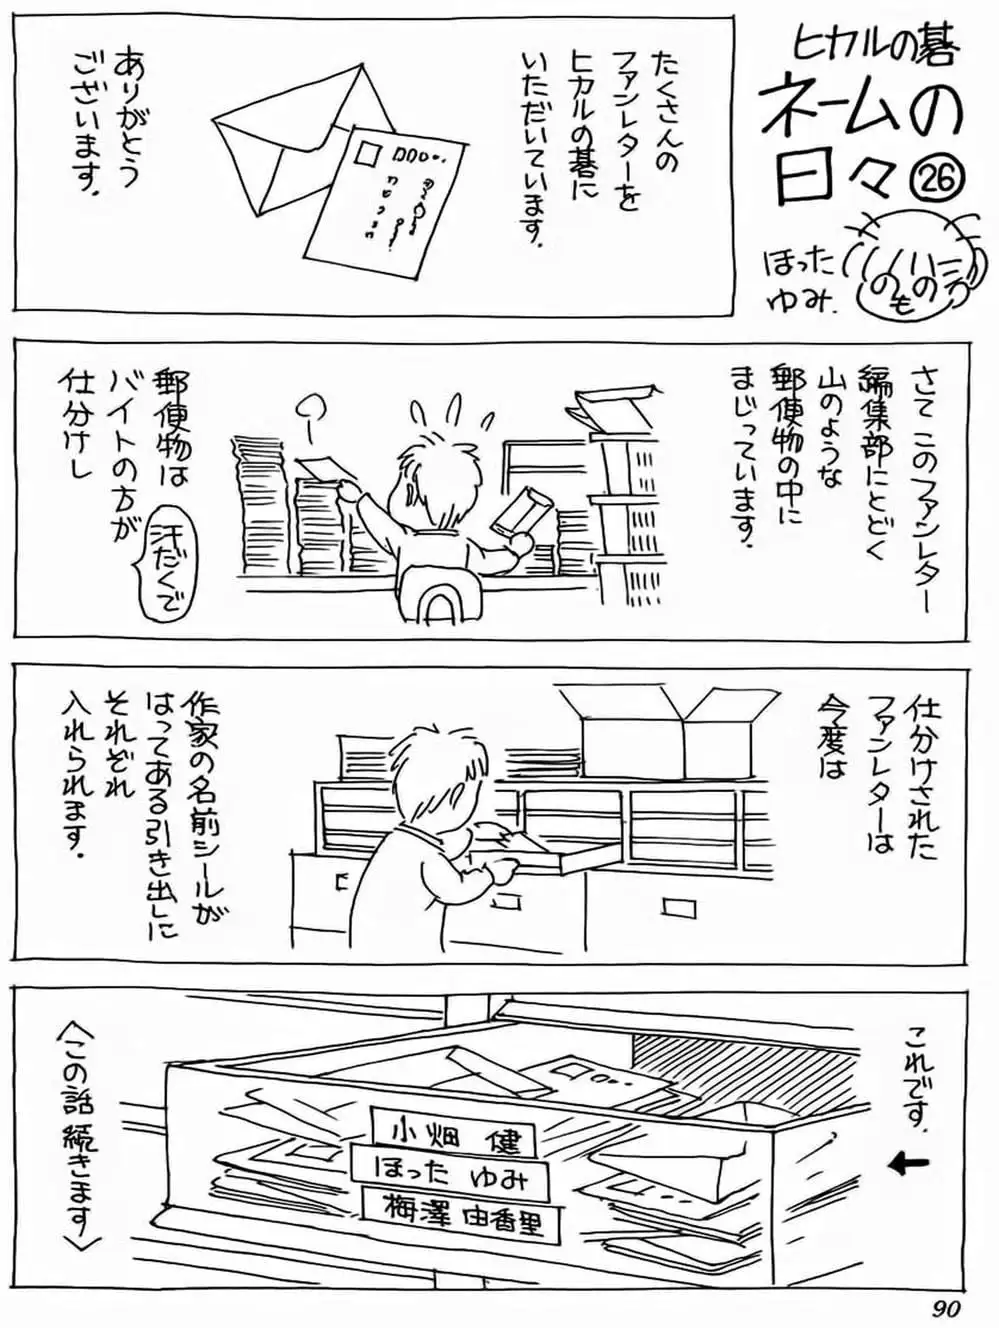 ヒカルの碁
ネームの
日々㉖
ほった
ゆみ.
たくさんの
ファンレターを
ヒカルの碁に
いただいています.
ありがとう
ございます.
さて このファンレター
編集部にとどく
山のような
郵便物の中に
まじっています.
郵便物は
バイトの方が
汗だくで
仕分けし
仕分けされた
ファンレターは
今度は
作家の名前シールが
はってある引き出しに
それぞれ
入れられます.
これです.
←
小畑 健
ほった ゆみ
梅澤 由香里
〈この話 続きます〉
90